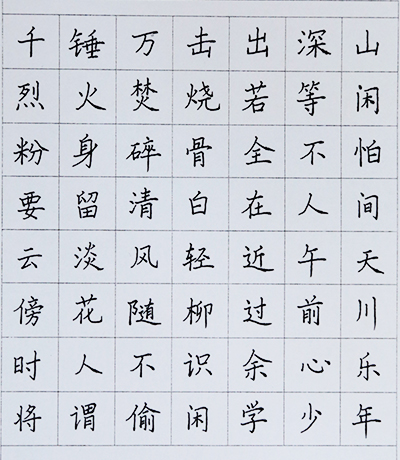 千锤万击出深山
烈火焚烧若等闲
粉身碎骨全不怕
要留清白在人间
云淡风轻近午天
傍花随柳过前川
时人不识余心乐
将谓偷闲学少年